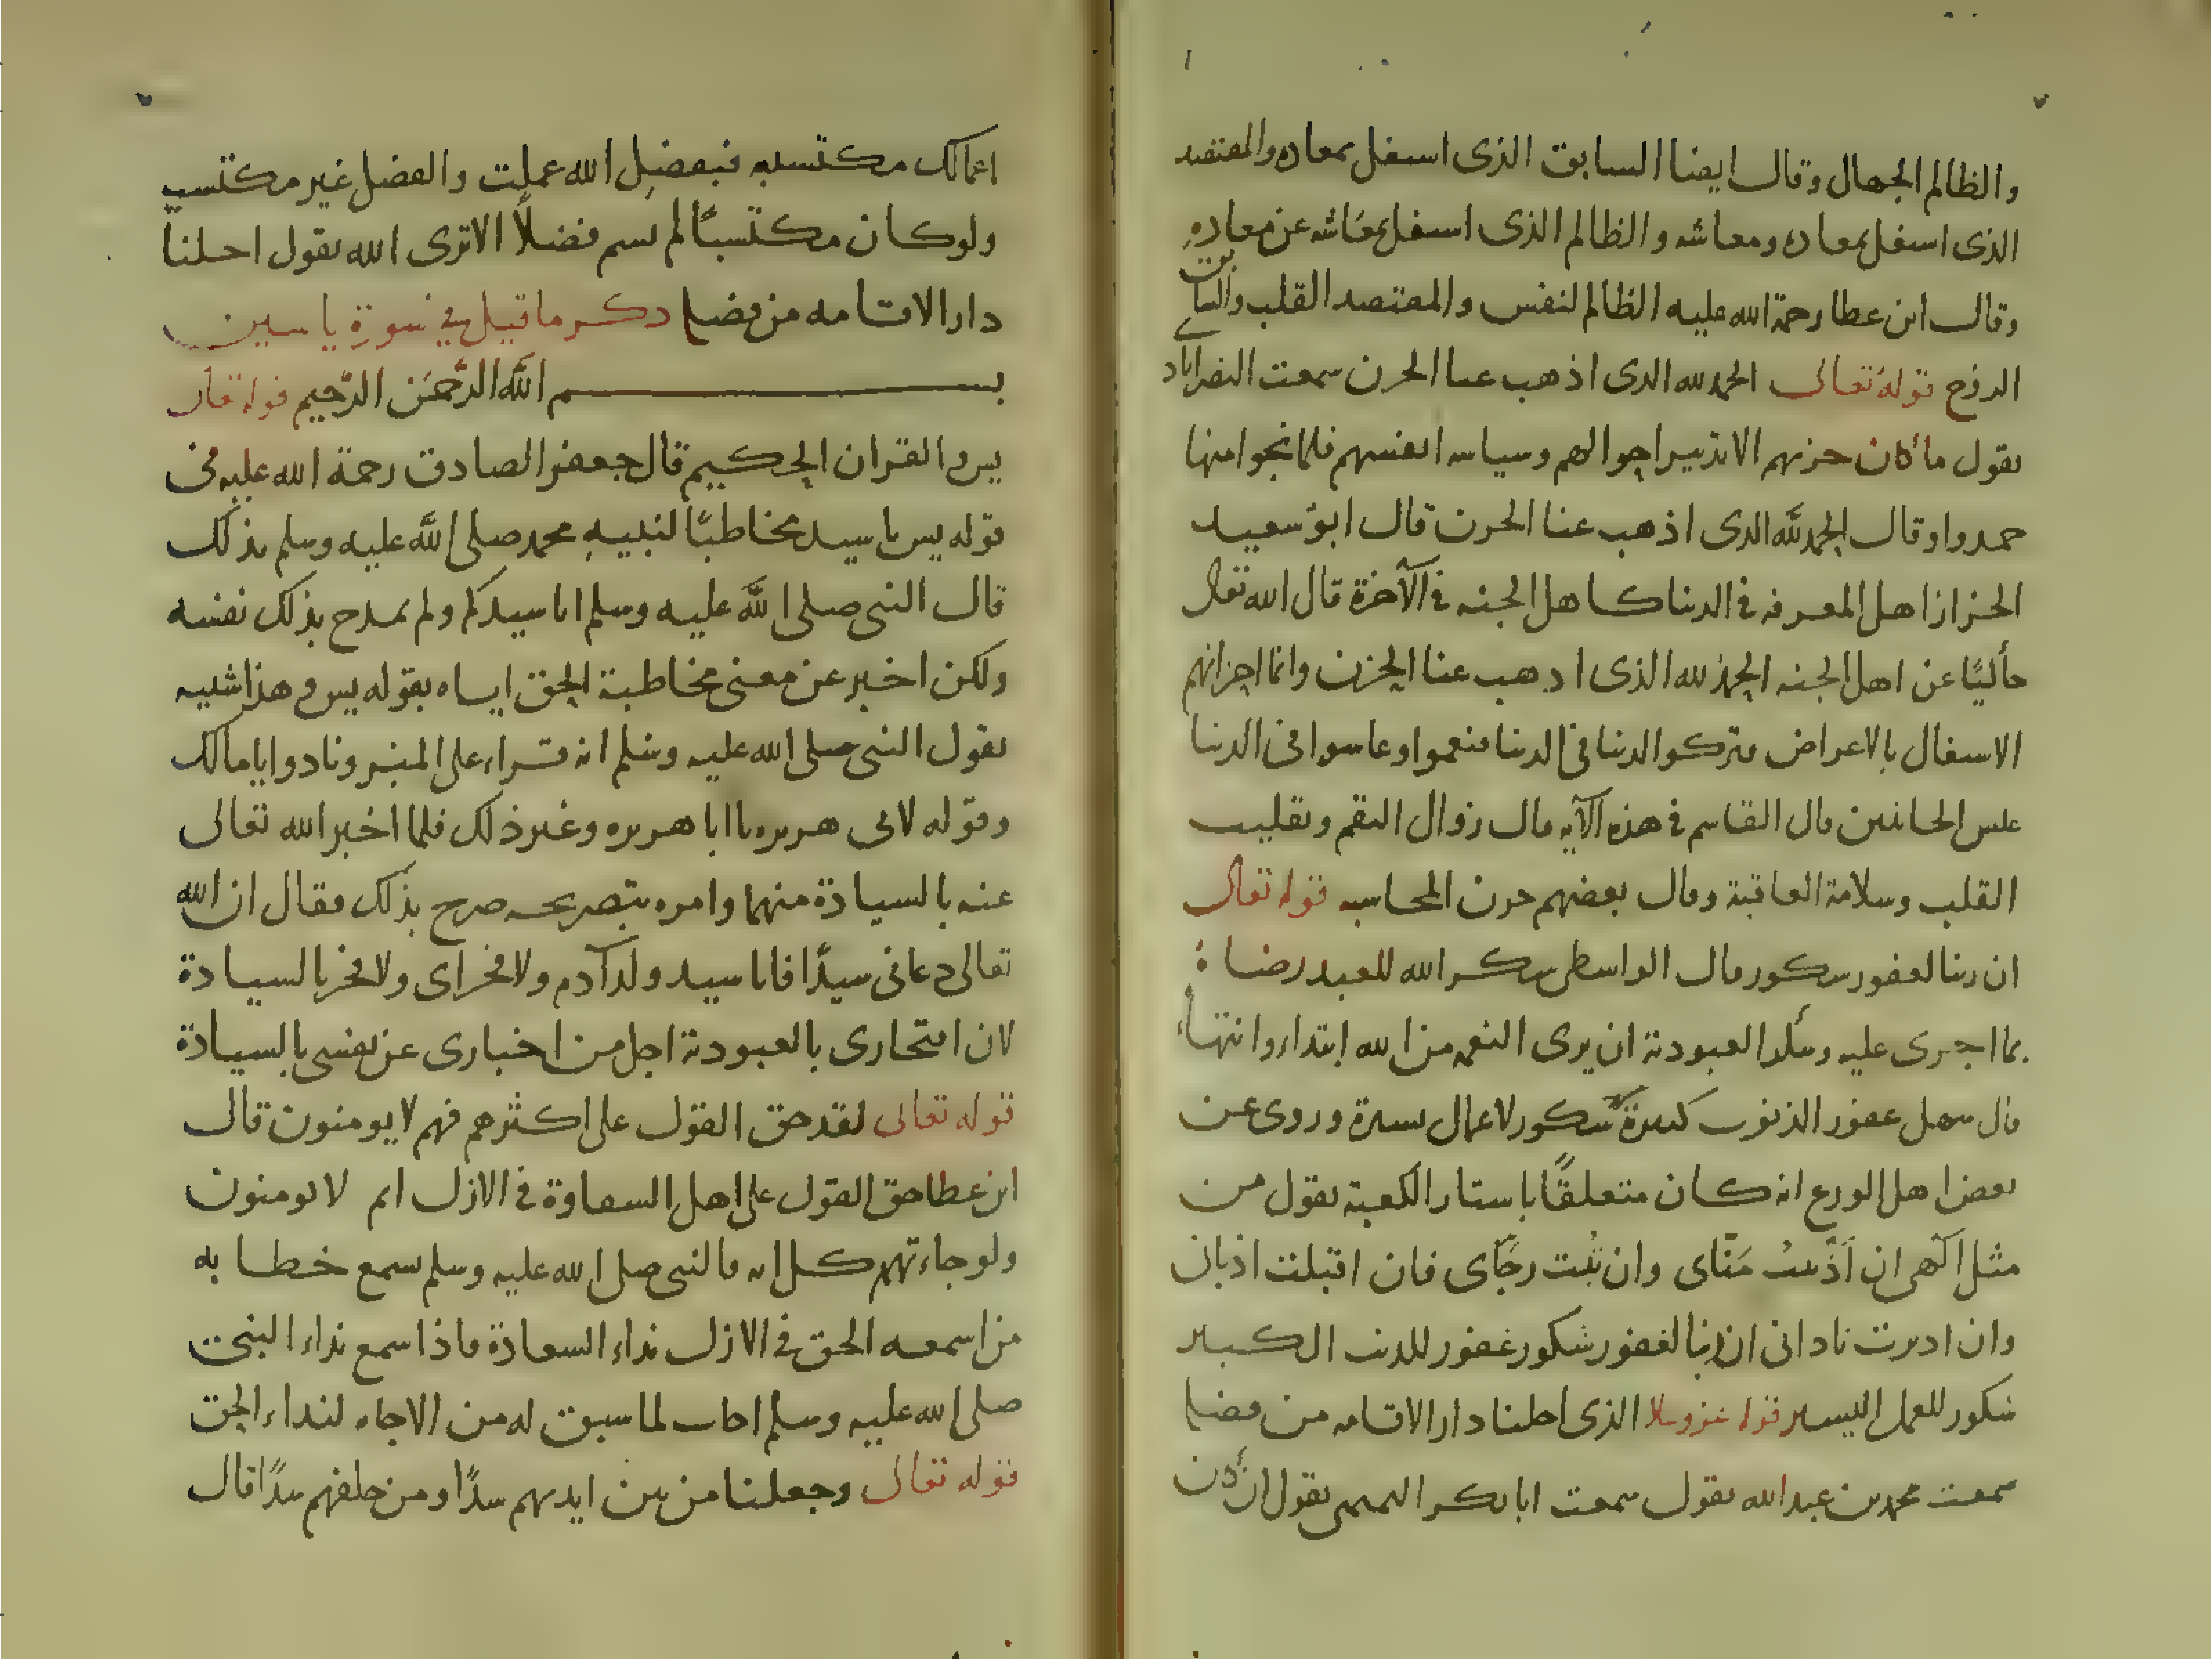 والظالم الجهال وقال ايضا السابق الذى اسعل بمعاده والمقتصد
الذى اسعل بمعاده ومعاشه والظالم الذى اسعل بمعاشه عن معاده
وقال ابن عطا رحمة الله عليه الظالم لنفس والمقتصد القلب والسابق
الروح قوله تعالى الحمد لله الدى اذهب عنا الحزن سمعت النصراباد
يقول ما كان حزنهم الا تدبير احوالهم وسياسه انفسهم فلما نجوا منها
حمدوا وقال الحمد لله الدى اذهب عنا الحزن قال ابو سعيد
الخزاز اهل المعرفه فى الدنيا كاهل الجنه فى الآخرة قال الله تعالى
حاكيًا عن اهل الجنه الحمد لله الذى ادهب عنا الحزن وانما احزانهم
الاسغال بالاعراض فتركوا الدنيا فى الدنيا فتنعموا وعاسوا فى الدنيا
عيس الجنانيين قال القاسم فى هذه الآيه قال زوال النقم وتقليب
القلب وسلامة العاقبة وقال بعضهم حزن المحاسبه قوله تعالى
ان ربنا لغفور سكور قال الواسطى سكر الله للعبد رضاه
بما اجرى عليه وسكر العبودية ان يرى النعمه من الله ابتداء وانتهاء
قال سهل غفور الذنوب كبيرة سكور لاعمال يسيرة وروى عن
بعض اهل الورع انه كان متعلقًا باستار الكعبة يقول من
مثل الهى ان اذنبت مناى وان تبت رجاى فان اقبلت ادنان
وان ادبرت نادانى ان ربنا لغفور شكور غفور للدنب الكبير
شكور للعمل اليسير قوله عز وجلا الذى احلنا دار الاقامه من فضله
سمعت محمد بن عبد الله يقول سمعت ابا بكر يقول ان كان
اعمالك مكتسبه فبفضل الله عملت والفضل غير مكتسب
ولو كان مكتسبًا لم يسم فضلًا الا ترى الله يقول احلنا
دار الاقامه من فضله دكر ما قيل فى سورة ياسين
بسم الله الرحمن الرحيم قوله تعالى
يس والقران الحكيم قال جعفر الصادق رحمة الله عليه فى
قوله يس يا سيد مخاطبًا لنبيه محمد صلى الله عليه وسلم بذلك
قال النبى صلى الله عليه وسلم انا سيدكم ولم يمدح بذلك نفسه
ولكن اخبر عن معنى مخاطبة الحق اياه بقوله يس وهذا شبيه
بقول النبى صلى الله عليه وسلم انه قراء على المنبر ونادوا يا مالك
وقوله لابى هريره يا ابا هريره وغير ذلك فلما اخبر الله تعالى
عنه بالسيادة منهما وامره بتصريحه صرح بذلك فقال ان الله
تعالى دعانى سيدًا فانا سيد ولد آدم ولا فخر اى ولا فخر بالسيادة
لان افتخارى بالعبودية اجل من اخبارى عن نفسى بالسيادة
قوله تعالى لقد حق القول على اكثرهم فهم لا يومنون قال
ابن عطا حق القول على اهل السقاوة فى الازل انهم لا يومنون
ولو جاءتهم كل ايه فالنبى صلى الله عليه وسلم سمع خطابه
من اسمعه الحق فى الازل نداء السعادة فاذا سمع نداء النبى
صلى الله عليه وسلم اجاب لما سبق له من الاجابه لنداء الحق
قوله تعالى وجعلنا من بين ايديهم سدًا ومن خلفهم سدًا قال